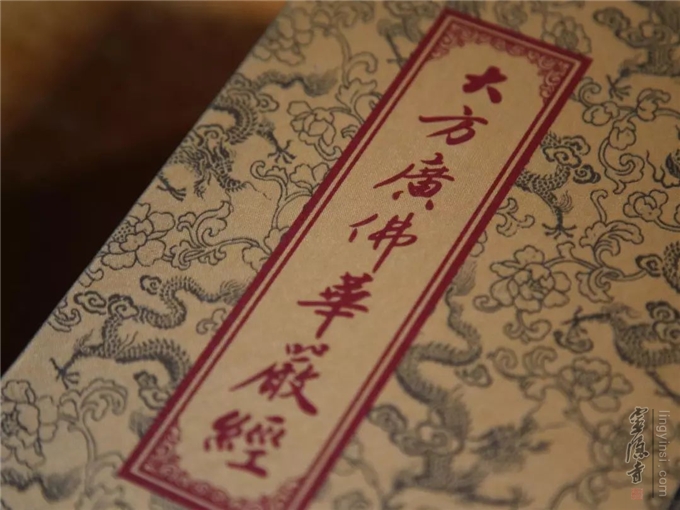 大方廣佛華嚴經
靈隱寺
lingyinsi.com